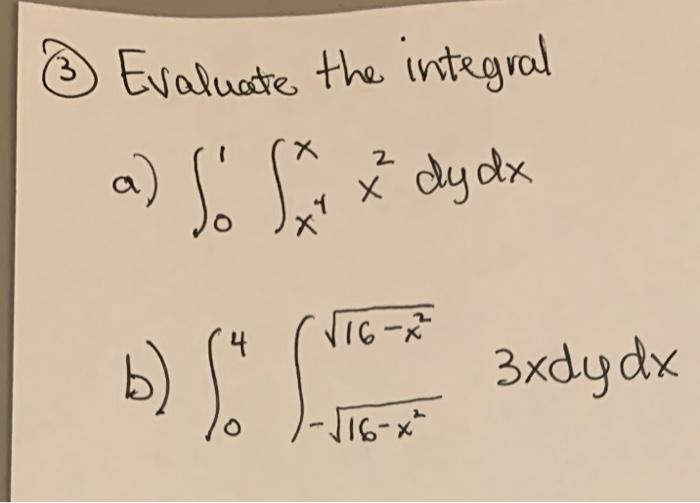 ③ Evaluate the integral
a) ∫₀¹ ∫ₓ⁴ˣ x² dy dx
b) ∫₀⁴ ∫₋√(16-x²)^√(16-x²) 3x dy dx